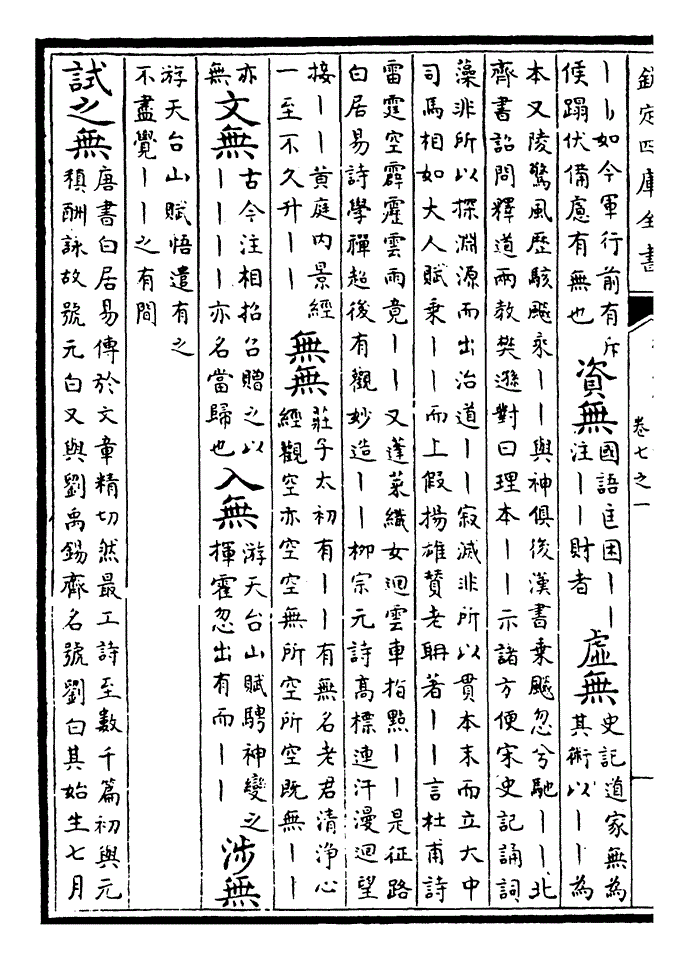 欽定四庫全書
卷七之一
丨丨如今軍行前有斥
候蹋伏備慮有無也
資無
國語匡困丨丨
注丨丨財者
虛無
史記道家無為
其術以丨丨為
本又陵驚風歷駭飈乘丨丨與神俱後漢書乗飈忽兮馳丨丨北
齊書詔問釋道兩教樊遜對曰理本丨丨示諸方便宋史記誦詞
藻非所以探淵源而出治道丨丨寂滅非所以貫本末而立大中
司馬相如大人賦乗丨丨而上假揚雄贊老聃著丨丨言杜甫詩
雷霆空霹靂雲雨竟丨丨又蓬萊織女迴雲車指點丨丨是征路
白居易詩學禪超後有觀妙造丨丨柳宗元詩高標連汗漫迴望
接丨丨黄庭内景經
一至不久升丨丨
無無
莊子太初有丨丨有無名老君清浄心
經觀空亦空空無所空所空既無丨丨
亦
無
文無
古今注相招召贈之以
丨丨丨丨亦名當歸也
入無
游天台山賦騁神變之
揮霍忽出有而丨丨
涉無
游天台山賦悟遣有之
不盡覺丨丨之有間
試之無
唐書白居易傳於文章精切然最工詩至數千篇初與元
稹酬詠故號元白又與劉禹錫齊名號劉白其始生七月